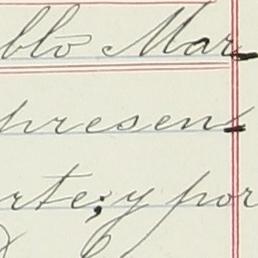 blo Mar-
presen-
rte; y por